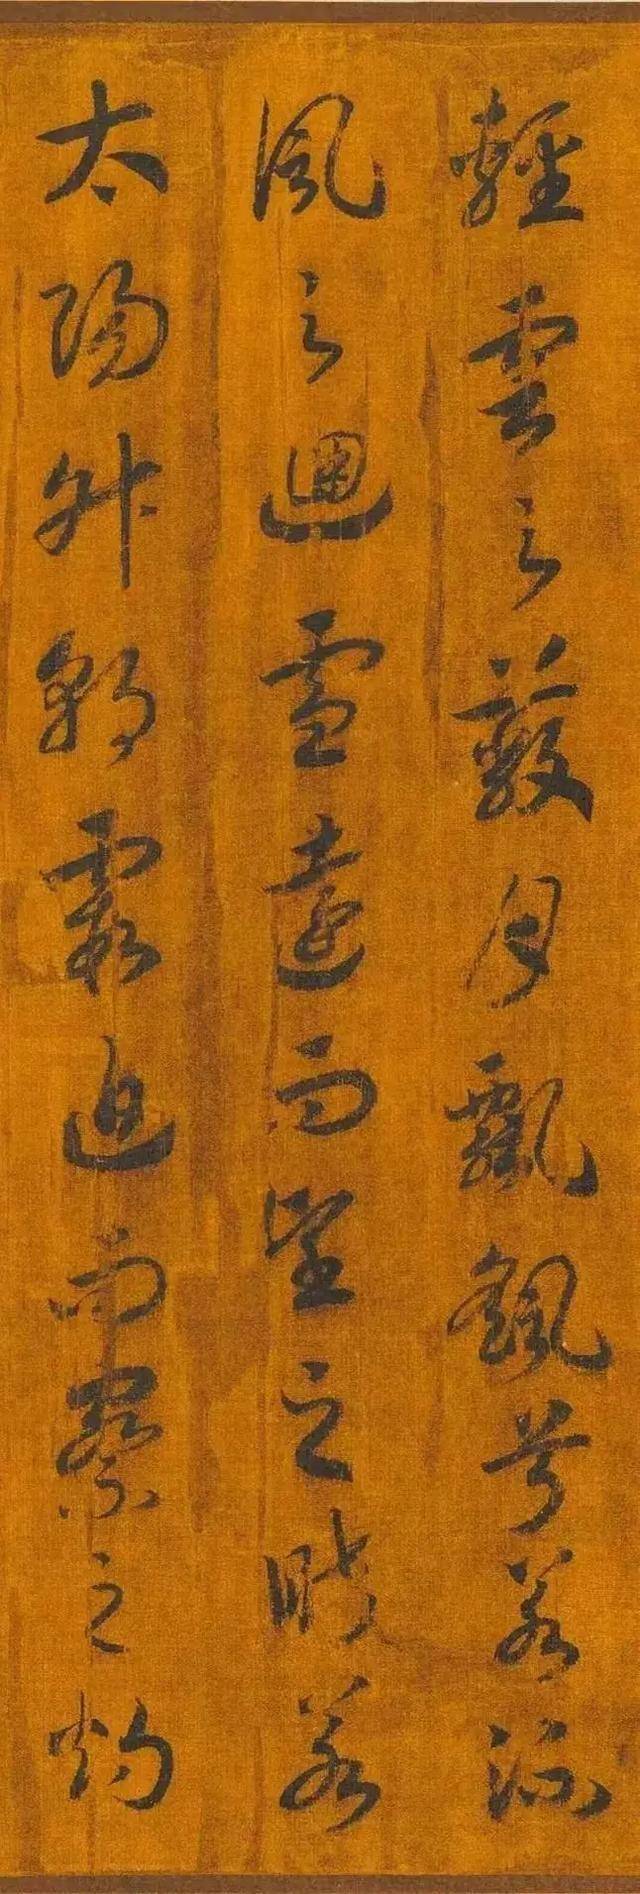 輕雲之蔽月飄飖兮若流
風之迴雪遠而望之皎若
太陽升朝霞迫而察之灼